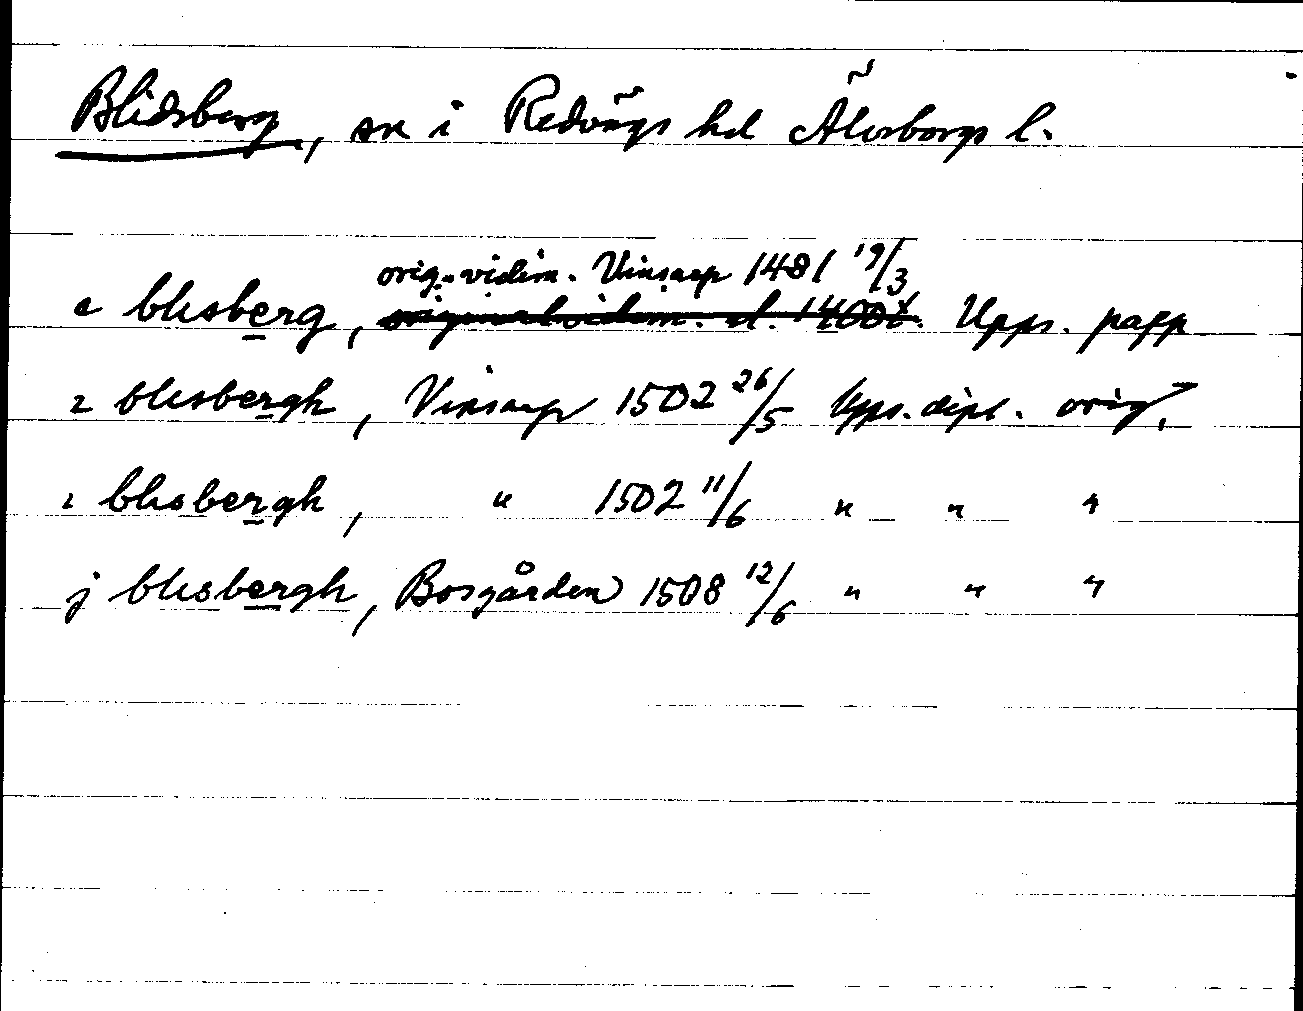 Blidsberg, sn i Redvägs hd Älvsborgs l.
orig.-vidim. Vinsarp 1481 19/3
a blisberg, originalvidim. d. 1400t. Upps. papp
i blisbergh, Vinsarp 1502 26/5 Upps. dipl. orig.
i blisbergh, " 1502 11/6 " " "
j blisbergh, Bosgården 1508 12/6 " " "